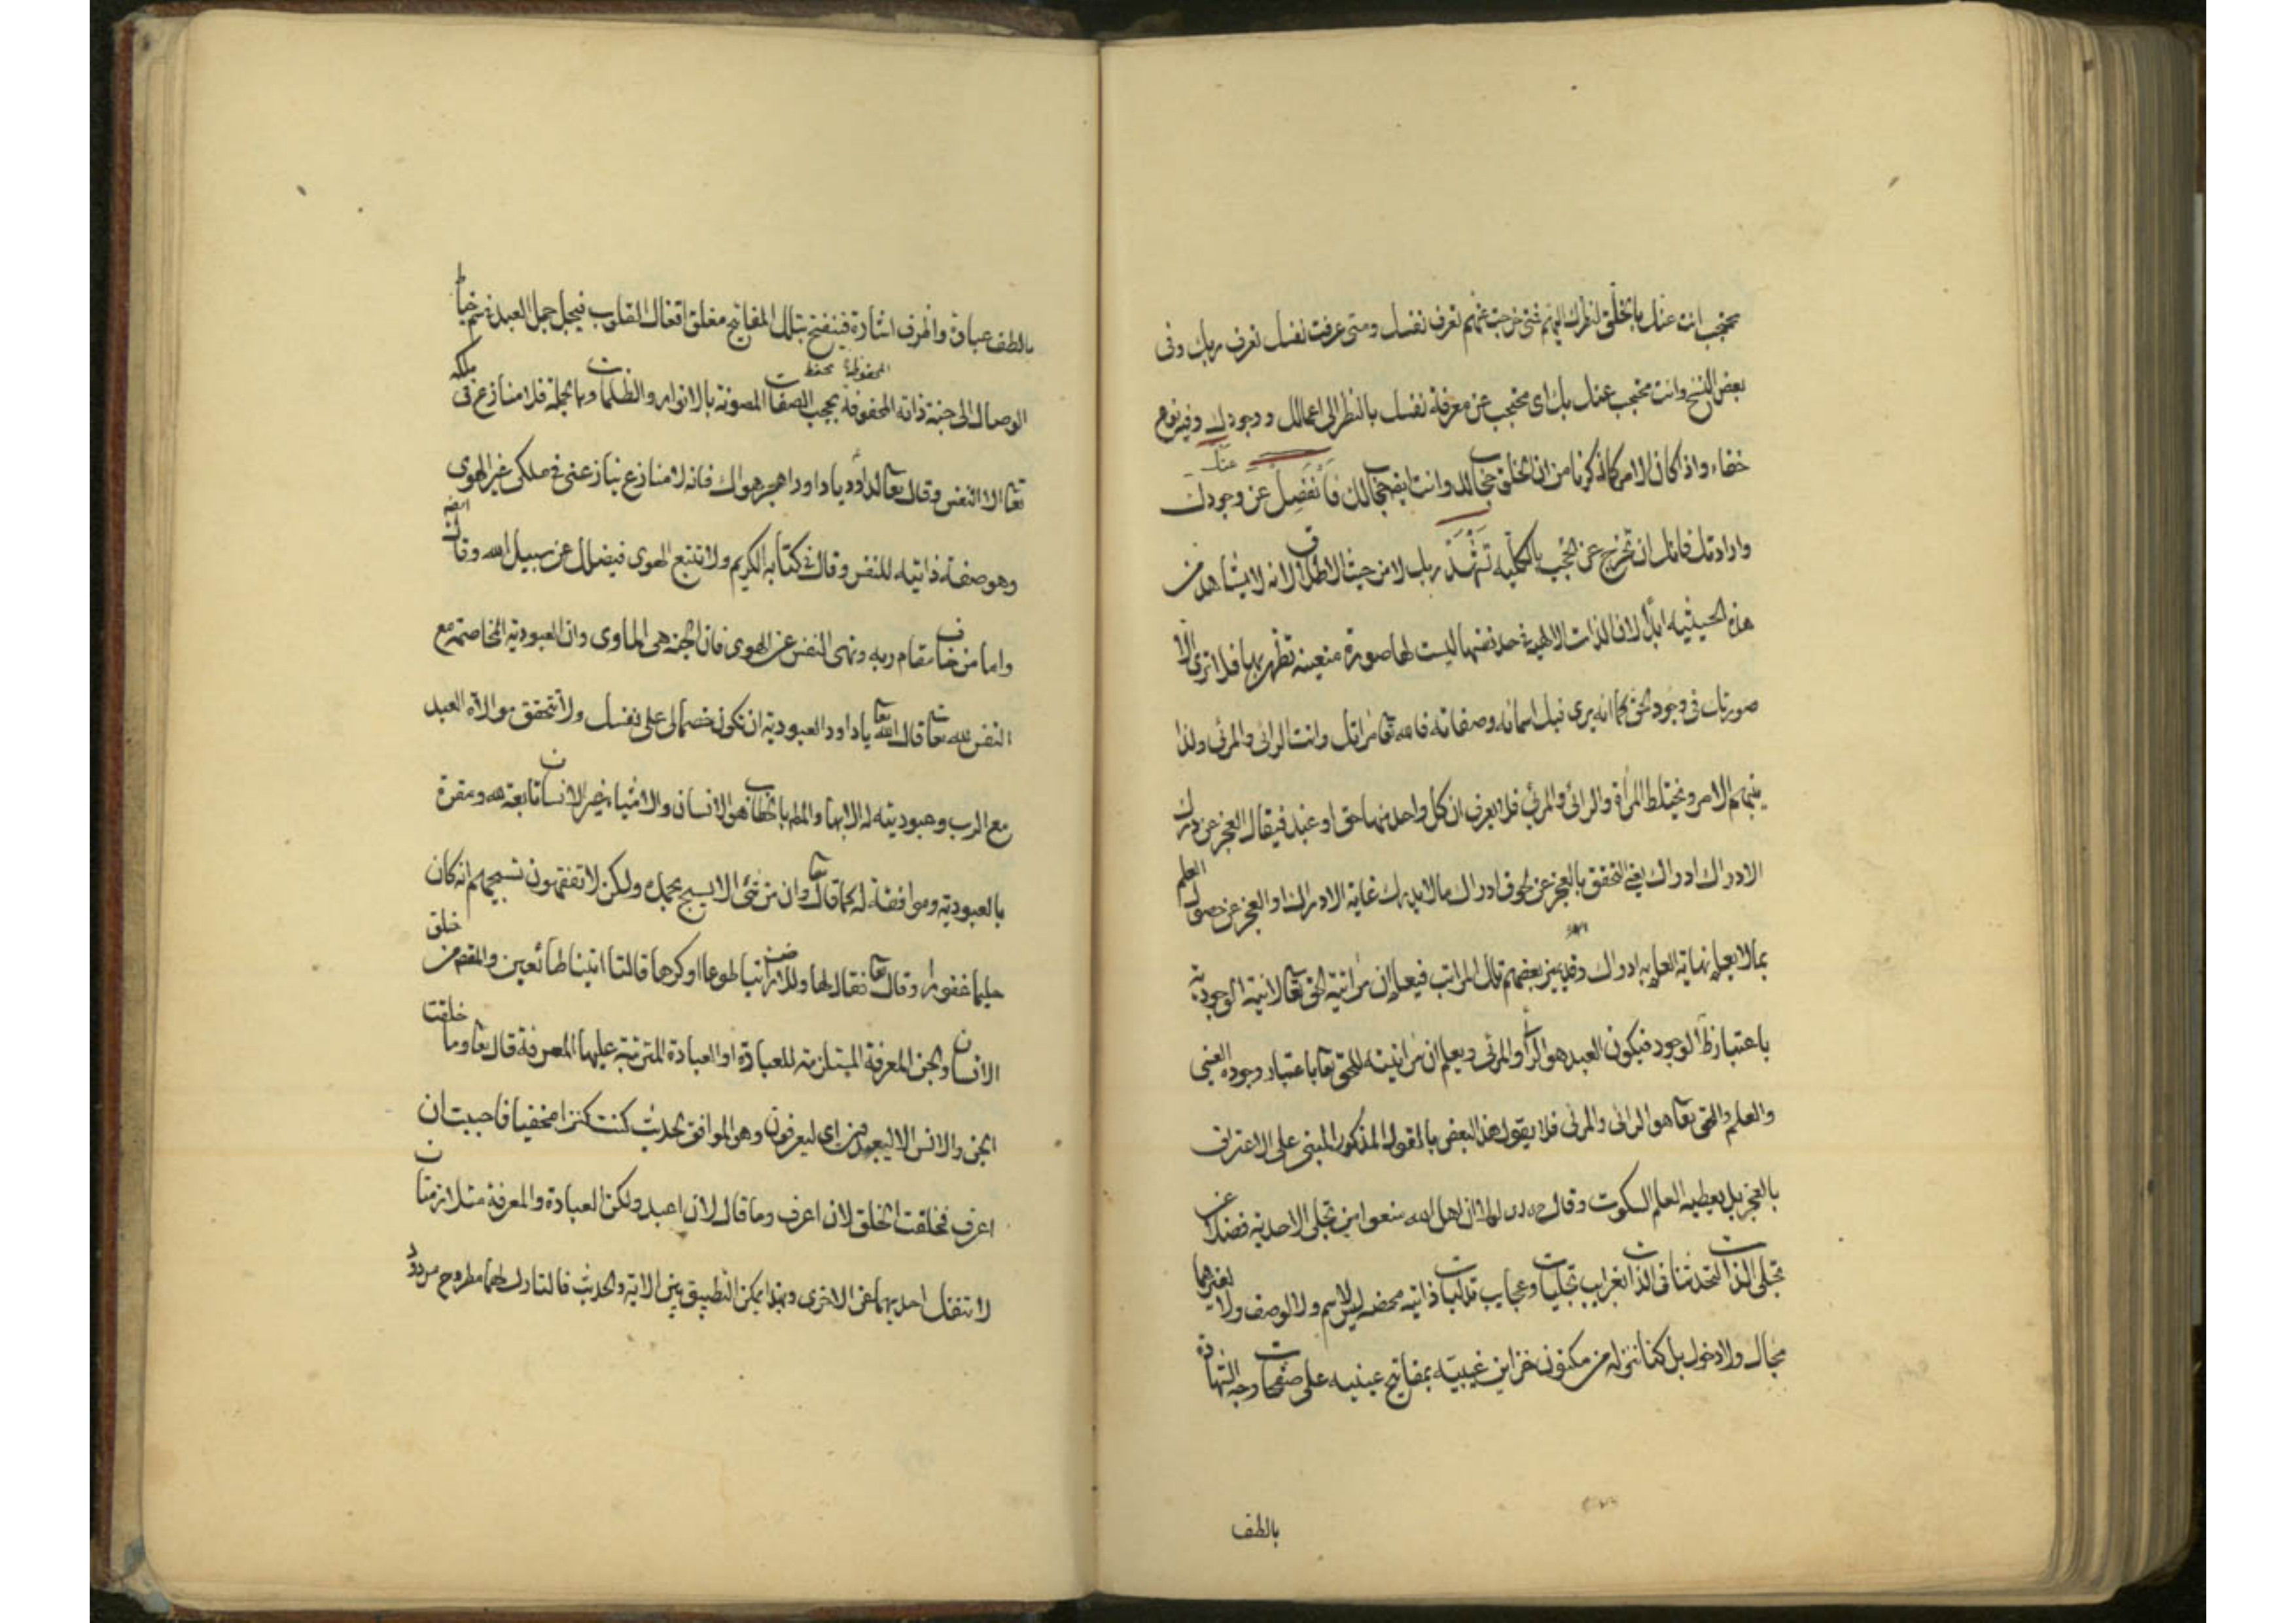 محتجب انت عنك بالخلق لنظرك اليهم فمتى خرجت عنهم تعرف نفسك ومتى عرفت نفسك تعرف ربك وفى
بعض النسخ وانت محتجب عنك بك اى محتجب عن معرفة نفسك بالنظر الى اعمالك ووجودك وفيه نوع
خفاء واذا كان الامر كما ذكرنا من ان الخلق حجاب لك وانت ايضا حجاب لك فانفصل عن وجودك عنك
وارادتك فانك ان تخرج عن الحجب بالكلية تشهد ربك لا من حيث الاطلاق لانه لا يشاهد من
هذه الحيثيه ابدا لان الذات الالهية فى حد نفسها ليست لها صورة متعينه تظهر بها فلا ترى الا
صورتك فى وجود الحق كما انه يرى فيك اسمائه وصفاته فالله تعا مراتك وانت الرائى والمرئى ولذا
ينبهم الامر ويختلط المرأة والرائى والمرئى فلا يعرف ان كل واحد منهما حق او عبد فيقال العجز عن درك
الادراك ادراك يعنى التحقق بالعجز عن لحوق ادراك ما لا يدرك غاية الادراك او العجز عن حصول العلم
بما لا يعلم نهاية العلم به ادراك وقد يميز بعضهم تلك المراتب فيعلم ان مراتية الحق تعا لانية الوجودية
باعتبار ظل الوجود فيكون العبد هو الرأى والمرئى ويعلم ان مراتيته للحق تعا باعتبار وجوده العينى
والعلم والحق تعا هو الرائى والمرئى فلا يقول هذا البعض بالمقول المذكور المبنى على الاعتراف
بالعجز بل يعطيه العلم السكوت وقال لما ان اهل الله منعوا من تجلى الاحدية فضلا عن
تجلى الذات لتحدثنا فى الذات بغرايب تجليات وعجايب تدليات ذاتيه محضه ليس لاسم ولا لوصف ولا لغيرهما
مجال ولا دخول بل كنا ننزله من مكنون خزاين غيبيته بمفاتيح عينيه على صفحات وجه الشهادة
بالطف
بالطف عبارة واظرف اشارة فينفتح بتلك المفاتيح مغلق اقفال القلوب فيلج جمل العبد فى سم خياط
الوصال الى جنة ذاته المحفوفة بحجب الصفات المصونة بالانوار والظلمات وبالجملة فلا منازع فى ملكه
المحفوظة بحفظ
تعا الا النفس وقال تعا لداود يا داود اهجر هواك فانه لا منازع ينازعنى فى ملكى غير الهوى
وهو صفة ذاتية للنفس وقال فى كتابه الكريم ولا تتبع الهوى فيضلك عن سبيل الله وقال ايضا
واما من خاف مقام ربه ونهى النفس عن الهوى فان الجنة هى الماوى وان العبودية المخاصمة مع
النفس لله تعا قال الله تعا يا داود العبودية ان تكون خصما لى على نفسك ولا تتحقق موالاة العبد
مع الرب وعبوديته له الا بها والمطم بالخطاب هو الانسان والاشياء غير الانسان تابعة له ومقرة
بالعبودية وموافقة له كما قال تعا وان من شئ الا يسبح بحمده ولكن لا تفقهون تسبيحهم انه كان
حليما غفورا وقال تعا فقال لها وللارض ائتيا طوعا او كرها قالتا اتينا طائعين والمقصم من خلق
الانسان والجن المعرفة المستلزمة للعبادة او العبادة المترتبة عليها المعرفة قال تعا وما خلقت
الجن والانس الا ليعبدون اى ليعرفون وهو الموافق لحديث كنت كنزا مخفيا فاحببت ان
اعرف فخلقت الخلق لان اعرف وما قال لان اعبد ولكن العبادة والمعرفة متلازمتان
لا تنفك احديهما عن الاخرى وبهذا يمكن التطبيق بين الاية والحديث فالتارك لهما مطروح مردود